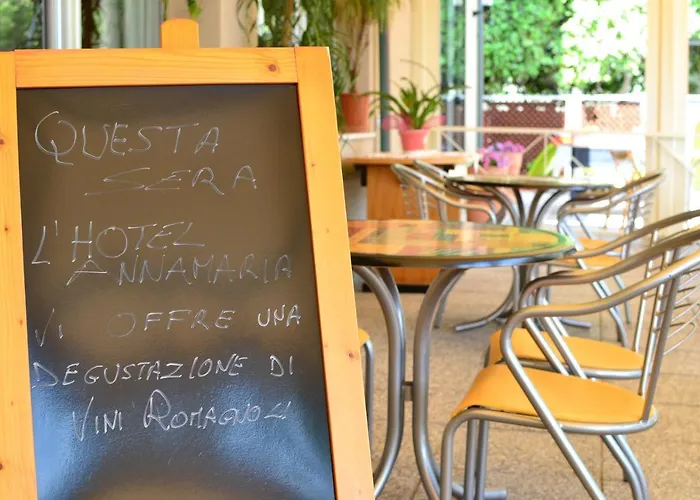 QUESTA
SERA
L'HOTEL
ANNAMARIA
VI OFFRE UNA
DEGUSTAZIONE DI
VINI ROMAGNOLI